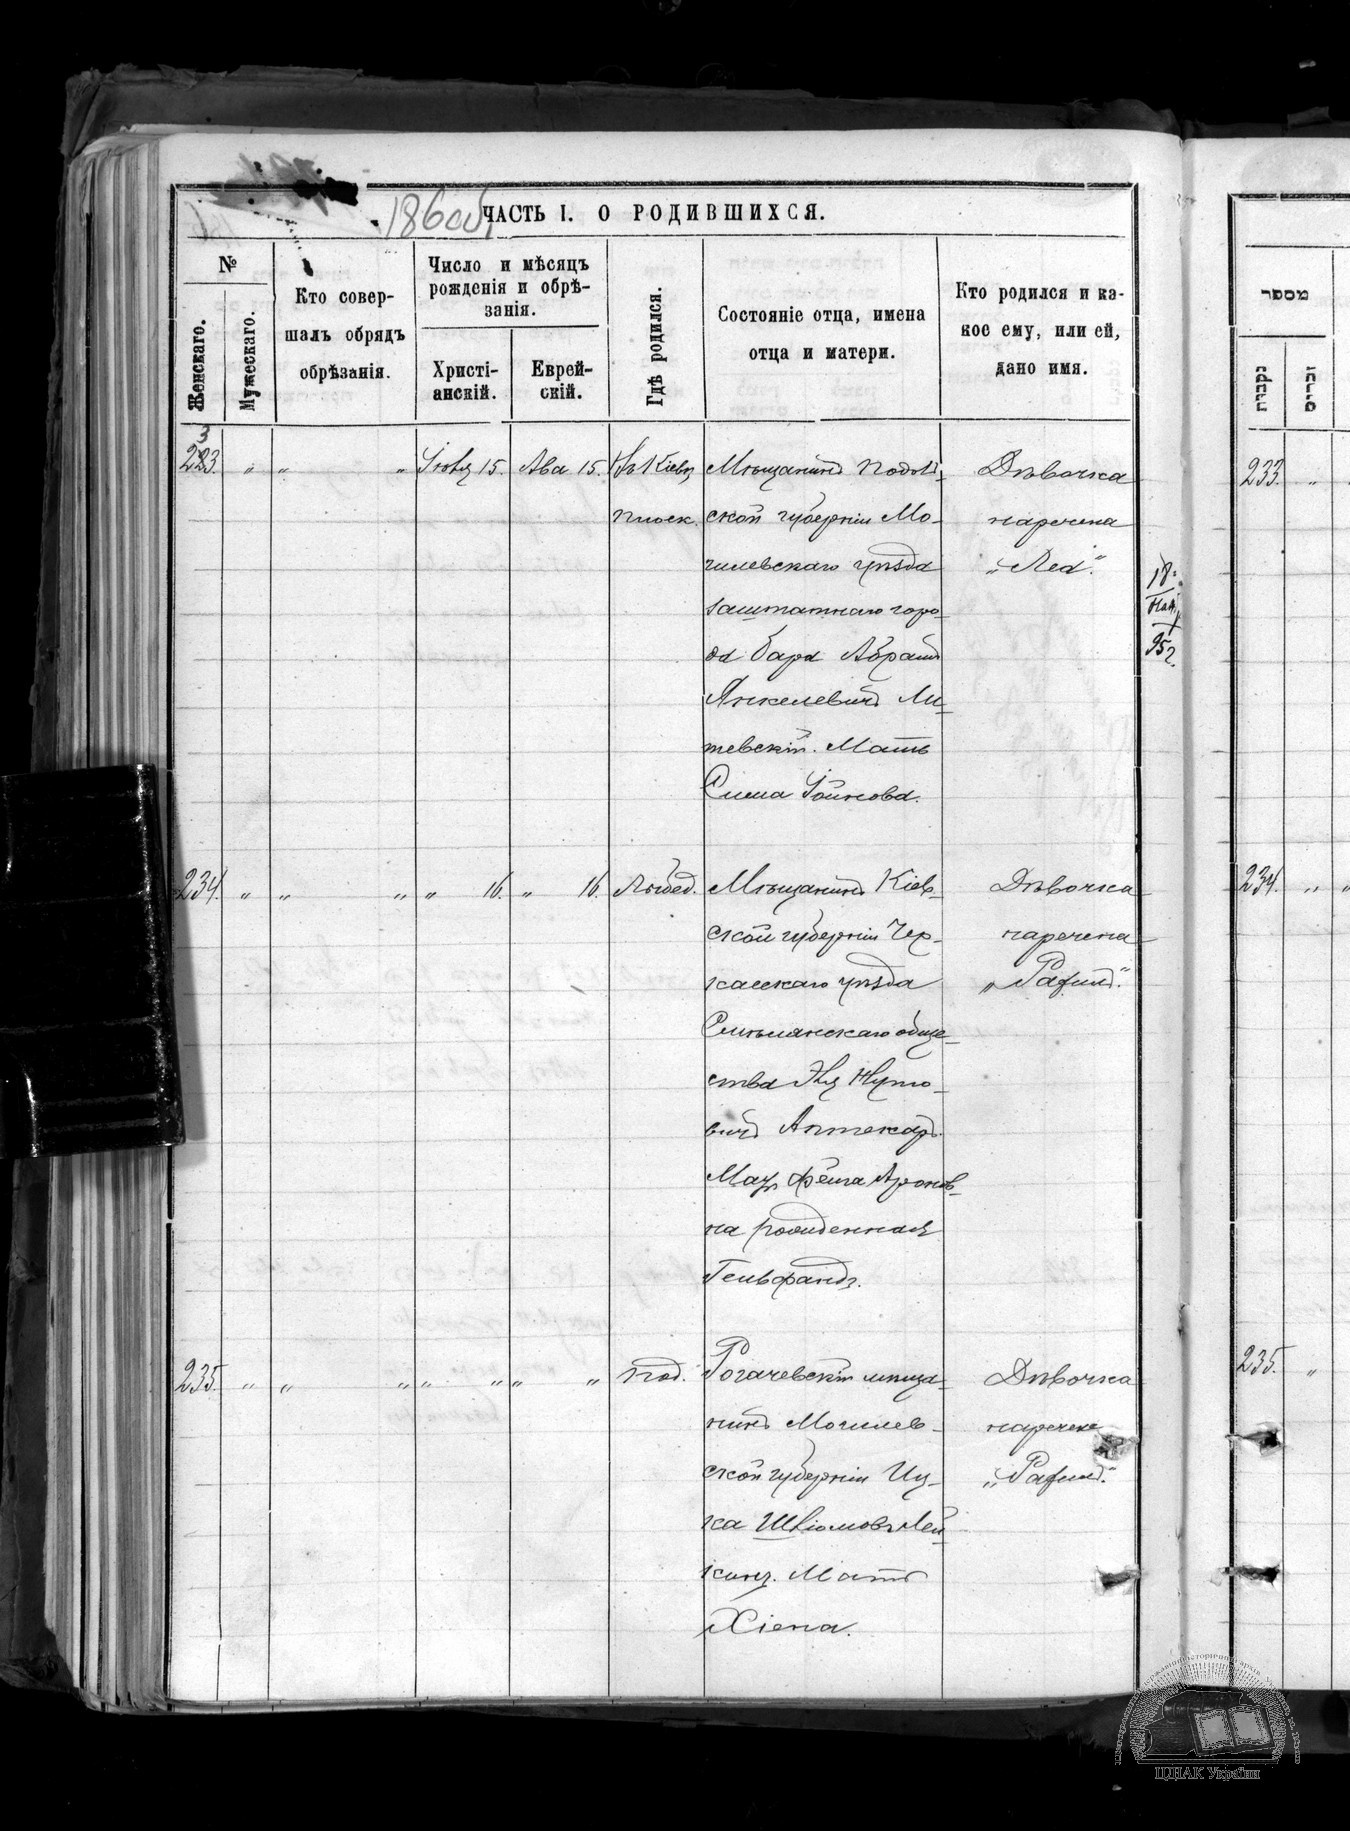 186 об,
ЧАСТЬ I. О РОДИВШИХСЯ.
№
Женскаго.
Мужескаго.
Кто совер-
шалъ обрядъ
обрѣзанія.
Число и мѣсяцъ
рожденія и обрѣ-
занія.
Христі-
анскій.
Еврей-
скій.
Гдѣ родился.
Состояніе отца, имена
отца и матери.
Кто родился и ка-
кое ему, или ей,
дано имя.
233. " " " Іюля 15. Ава 15. Въ Кіевѣ
плоск.
Мѣщанинъ Подоль-
ской губерніи Мо-
гилевскаго уѣзда
заштатнаго горо-
да Бара Абрамъ
Янкелевичъ Ли-
тевскій. Мать
Сима Іойнова.
Дѣвочка
наречена
„Леа."
18
95 г.
234. " " " " 16. " 16. Лыбед.
Мѣщанинъ Кіев-
ской губерніи Чер-
касскаго уѣзда
Смѣлянскаго обще-
ства Эля Нуто-
вичъ Аптекарь.
Мать Фейга Аронов-
на рожденная
Гельфандъ.
Дѣвочка
наречена
„Рафилъ."
235. " " " " " " " Под.
Рогачевскій мѣща-
нинъ Могилев-
ской губерніи Иц-
ка Шліомовъ Лей-
кинъ. Мать
Хіена.
Дѣвочка
наречена
„Рафилъ."
מספר
נקבות
זכרים
233. "
234. " "
235. "
ЦДІАК України